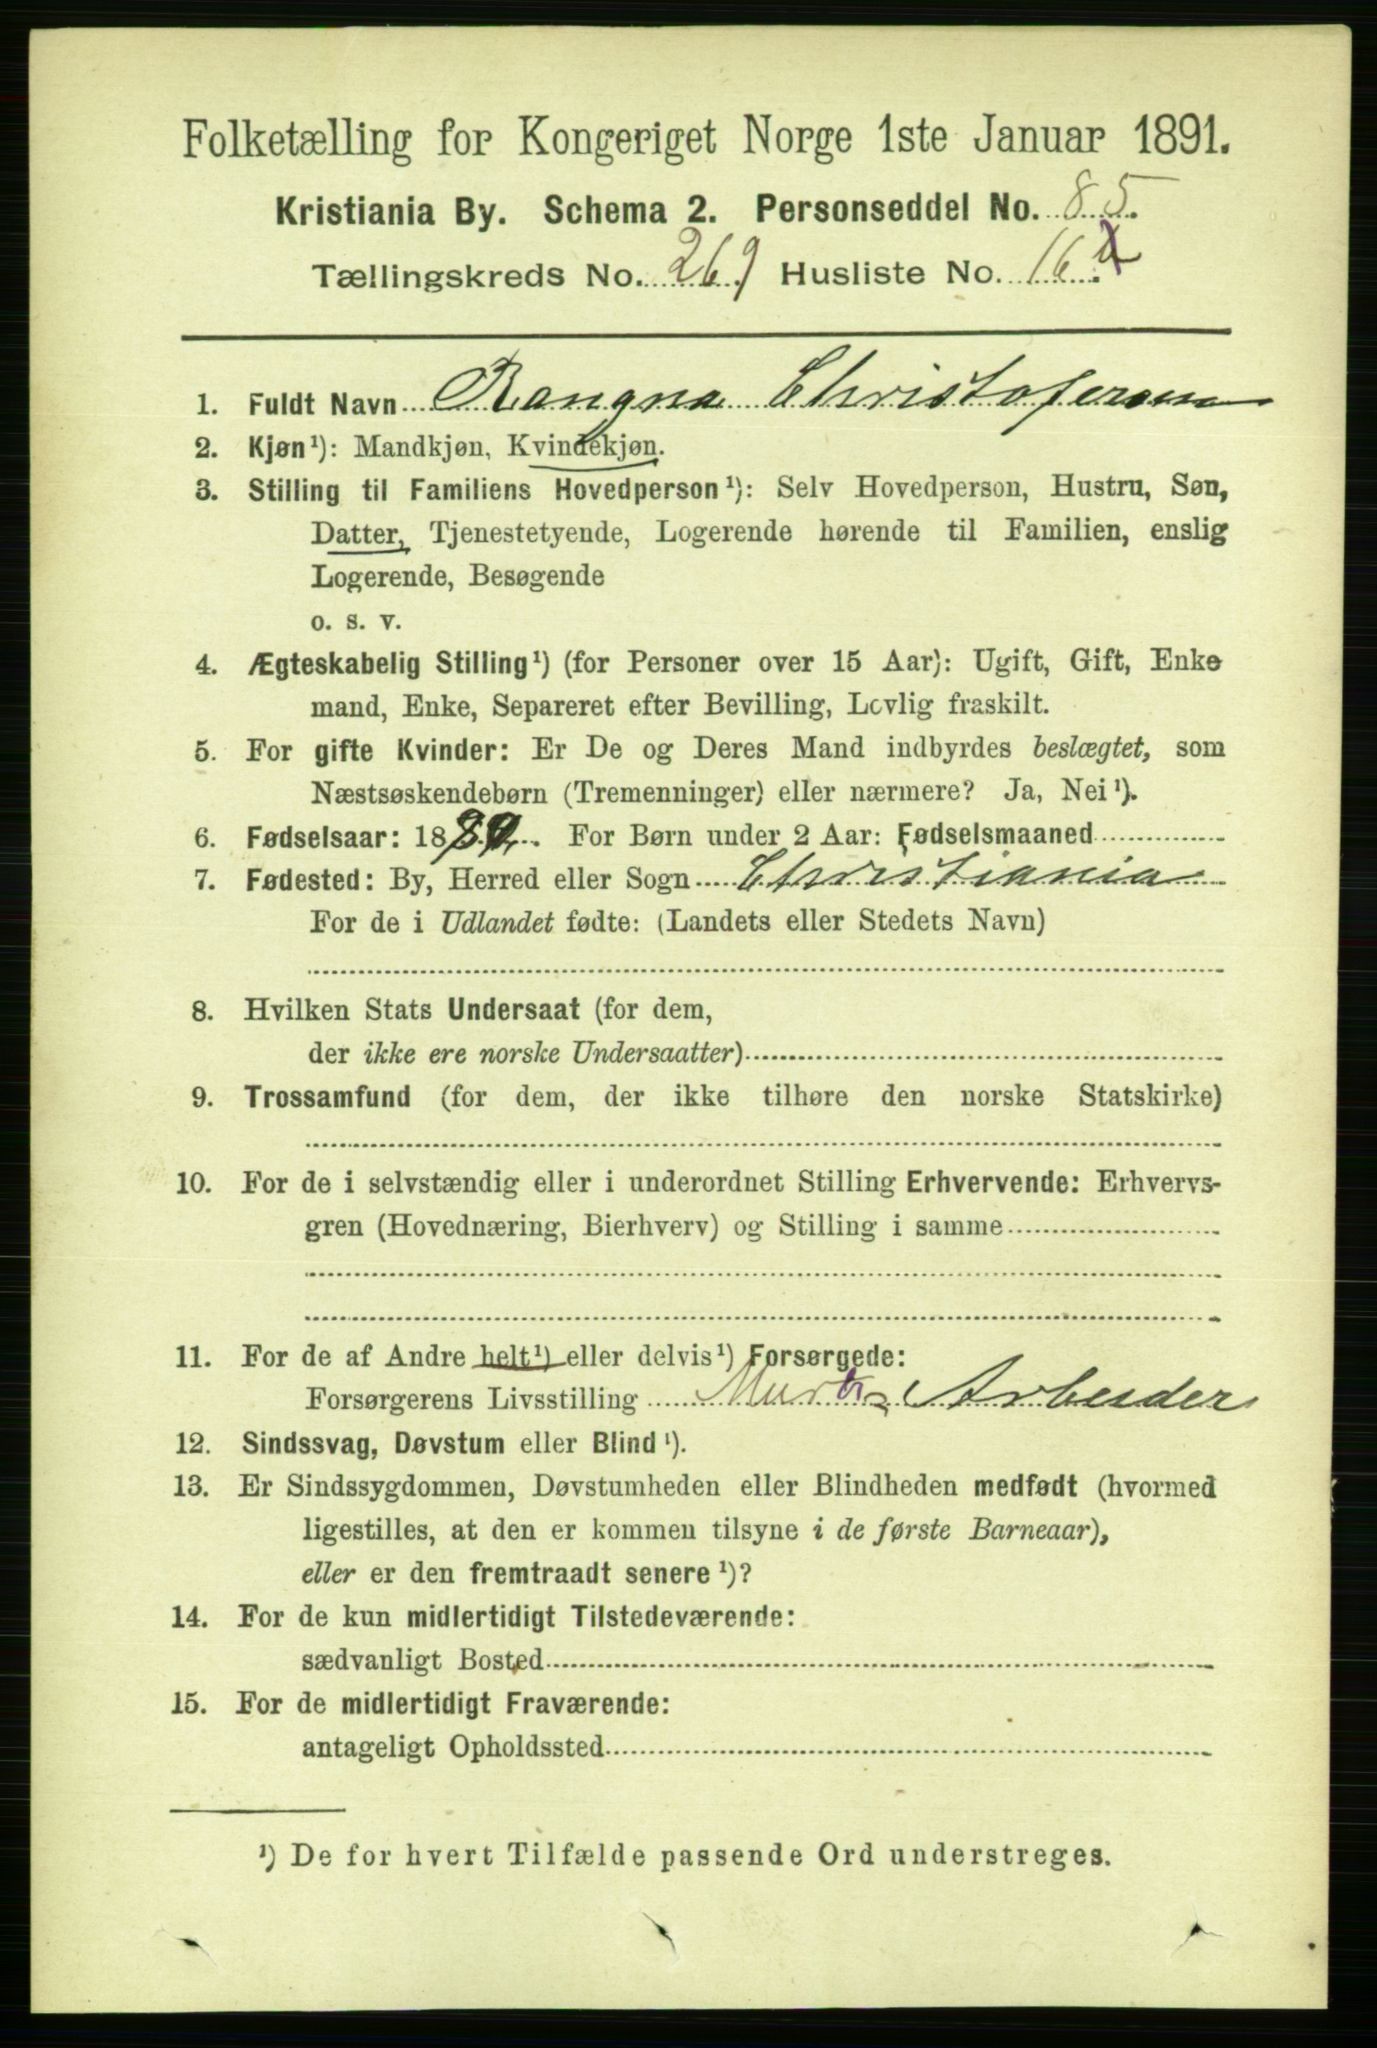 Folketælling for Kongeriget Norge 1ste Januar 1891.
Kristiania By. Schema 2. Personseddel No. 85.
Tællingskreds No. 269 Husliste No. 16
1. Fuldt Navn Rangna Christofersen
2. Kjøn¹): Mandkjøn, Kvindekjøn.
3. Stilling til Familiens Hovedperson¹): Selv Hovedperson, Hustru, Søn,
Datter, Tjenestetyende, Logerende hørende til Familien, enslig
Logerende, Besøgende
o. s. v.
4. Ægteskabelig Stilling¹) (for Personer over 15 Aar): Ugift, Gift, Enke
mand, Enke, Separeret efter Bevilling, Lovlig fraskilt.
5. For gifte Kvinder: Er De og Deres Mand indbyrdes beslægtet, som
Næstsøskendebørn (Tremenninger) eller nærmere? Ja, Nei¹).
6. Fødselsaar: 18 For Børn under 2 Aar: Fødselsmaaned
7. Fødested: By, Herred eller Sogn Christiania
For de i Udlandet fødte: (Landets eller Stedets Navn)
8. Hvilken Stats Undersaat (for dem,
der ikke ere norske Undersaatter)
9. Trossamfund (for dem, der ikke tilhøre den norske Statskirke)
10. For de i selvstændig eller i underordnet Stilling Erhvervende: Erhvervs-
gren (Hovednæring, Bierhverv) og Stilling i samme
11. For de af Andre helt¹) eller delvis¹) Forsørgede:
Forsørgerens Livsstilling Arbeider
12. Sindssvag, Døvstum eller Blind¹).
13. Er Sindssygdommen, Døvstumheden eller Blindheden medfødt (hvormed
ligestilles, at den er kommen tilsyne i de første Barneaar),
eller er den fremtraadt senere¹)?
14. For de kun midlertidigt Tilstedeværende:
sædvanligt Bosted
15. For de midlertidigt Fraværende:
antageligt Opholdssted
¹) De for hvert Tilfælde passende Ord understreges.